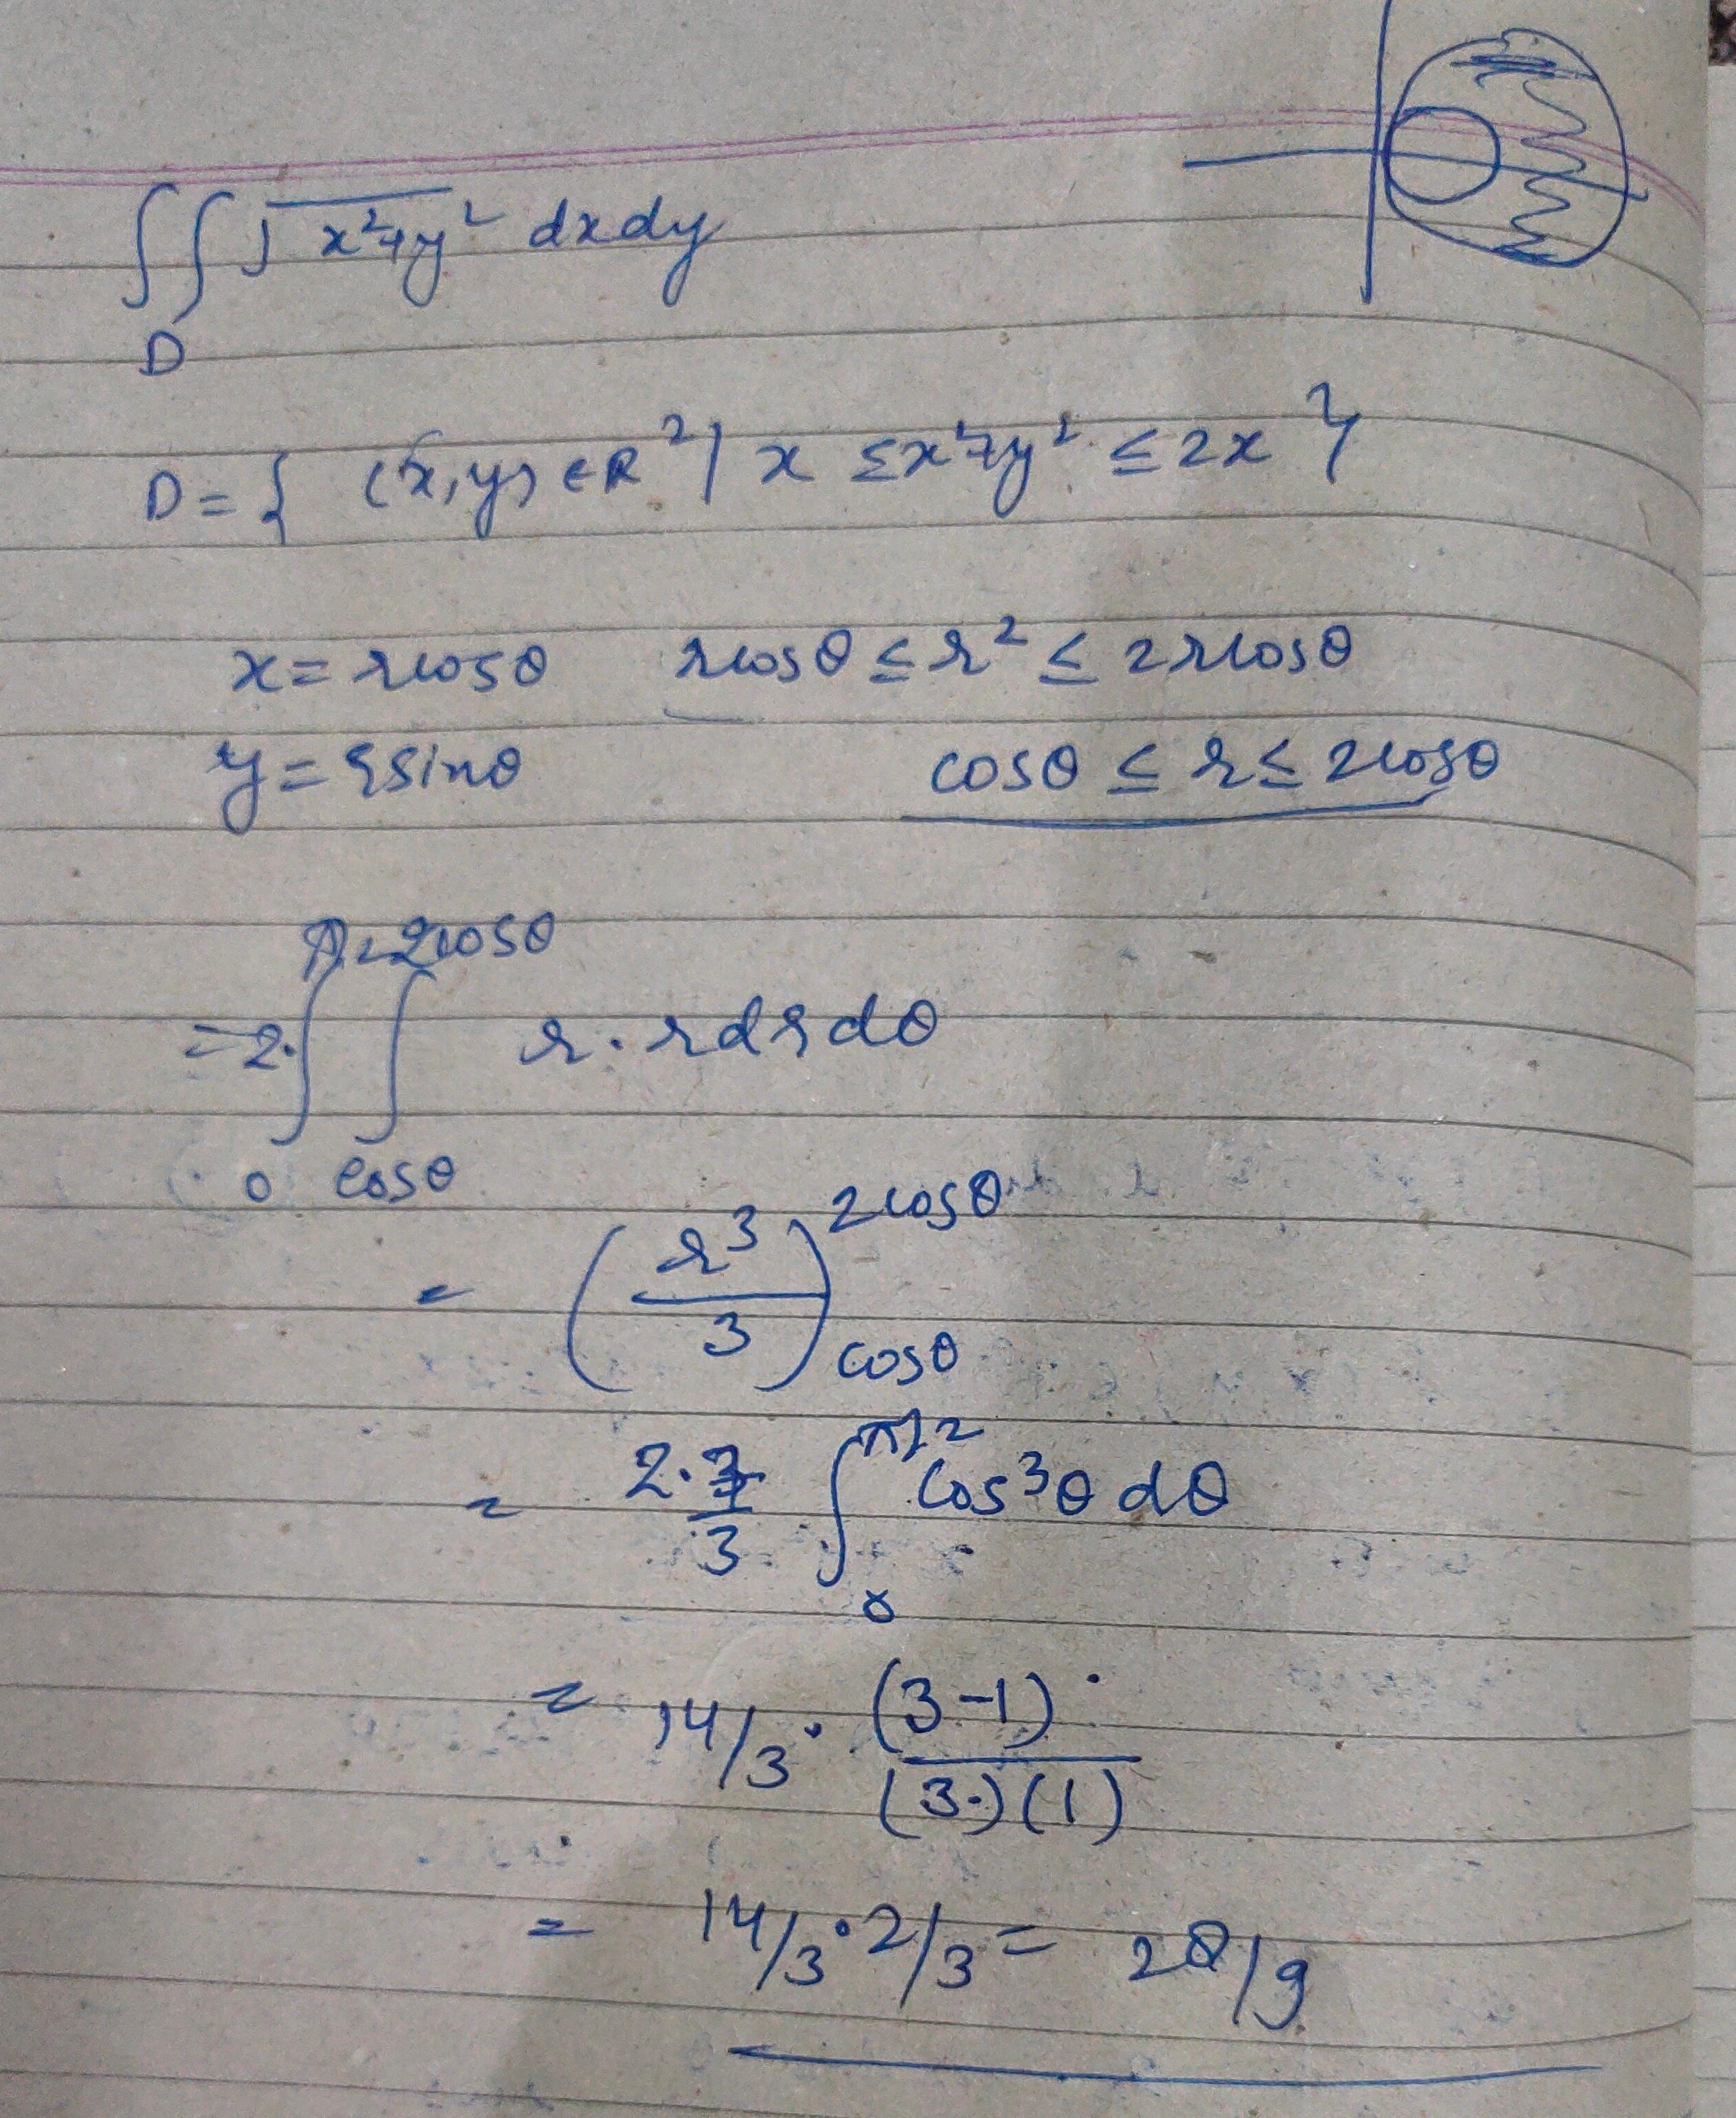 ∫∫ √x²+y² dxdy
D
D = { (x,y) ∈ R² | x ≤ x²+y² ≤ 2x }
x = rcosθ rcosθ ≤ r² ≤ 2rcosθ
y = rsinθ cosθ ≤ r ≤ 2cosθ
π/2 2cosθ
= 2·∫ ∫ r·rdrdθ
0 cosθ
= (r³/3) 2cosθ
cosθ
= 2·7/3 ∫ π/2 cos³θ dθ
0
= 14/3 · (3-1)·/(3·)(1)
= 14/3·2/3 = 28/9